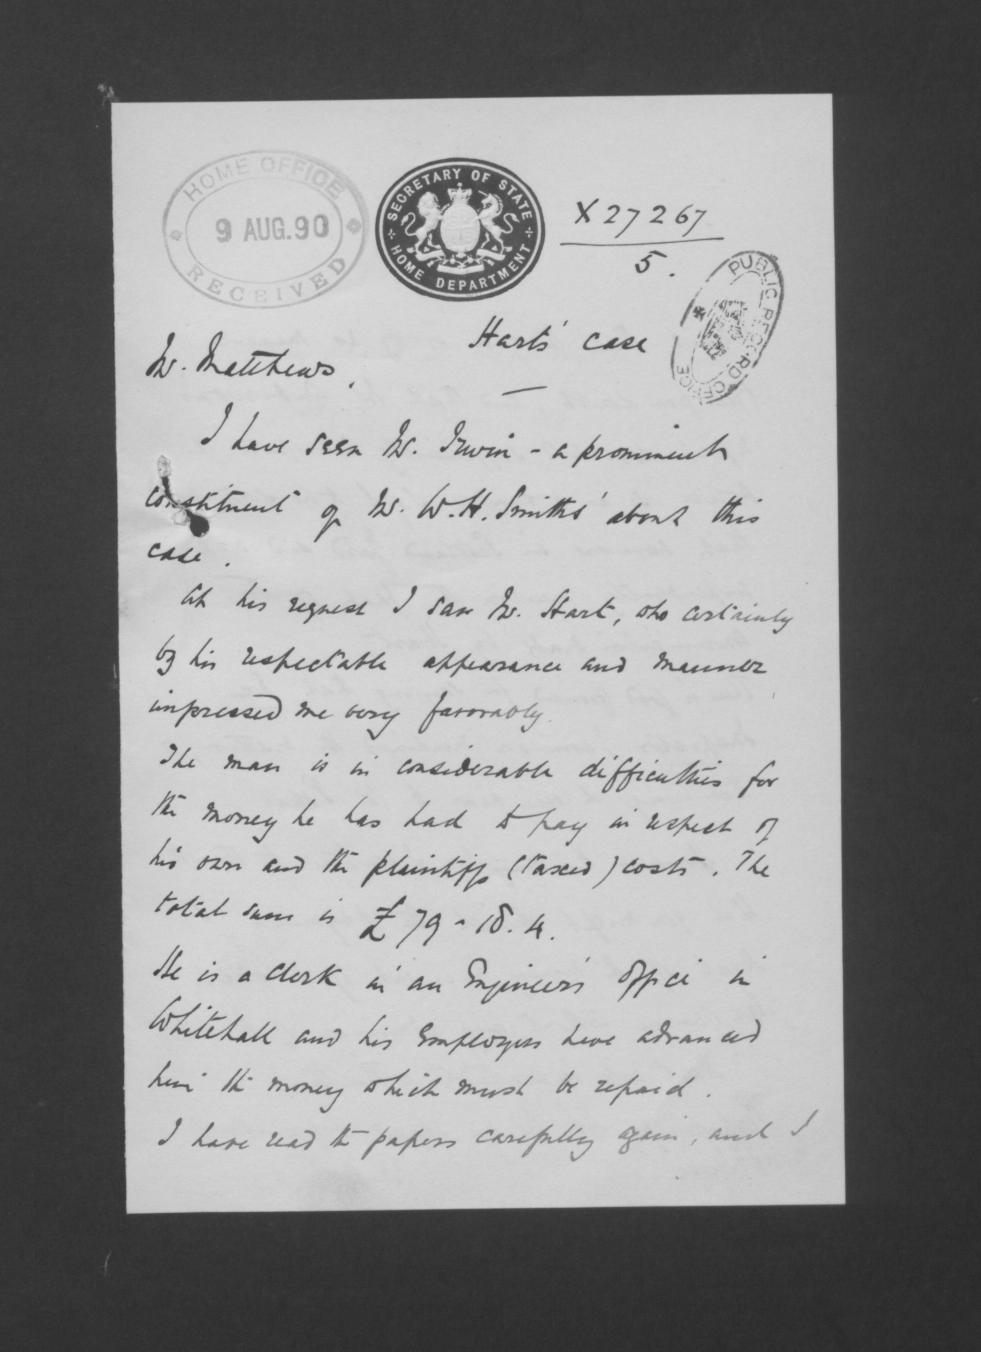 HOME OFFICE
9 AUG.90
RECEIVED
SECRETARY OF STATE
HOME DEPARTMENT
X 27267
5.
PUBLIC RECORD OFFICE
Harts' case
Mr. Matthews.
I have seen Mr. Irwin - a prominent
constituent of Mr. W.H. Smiths' about this
case.
At his request I saw Mr. Hart, who certainly
by his respectable appearance and manner
impressed me very favorably.
The man is in considerable difficulties for
the money he has had to pay in respect of
his own and the plaintiffs (taxed) costs. The
total sum is £79-18.4.
He is a clerk in an Engineers office in
Whitehall and his Employers have advanced
him the money which must be repaid.
I have read the papers carefully again, and I